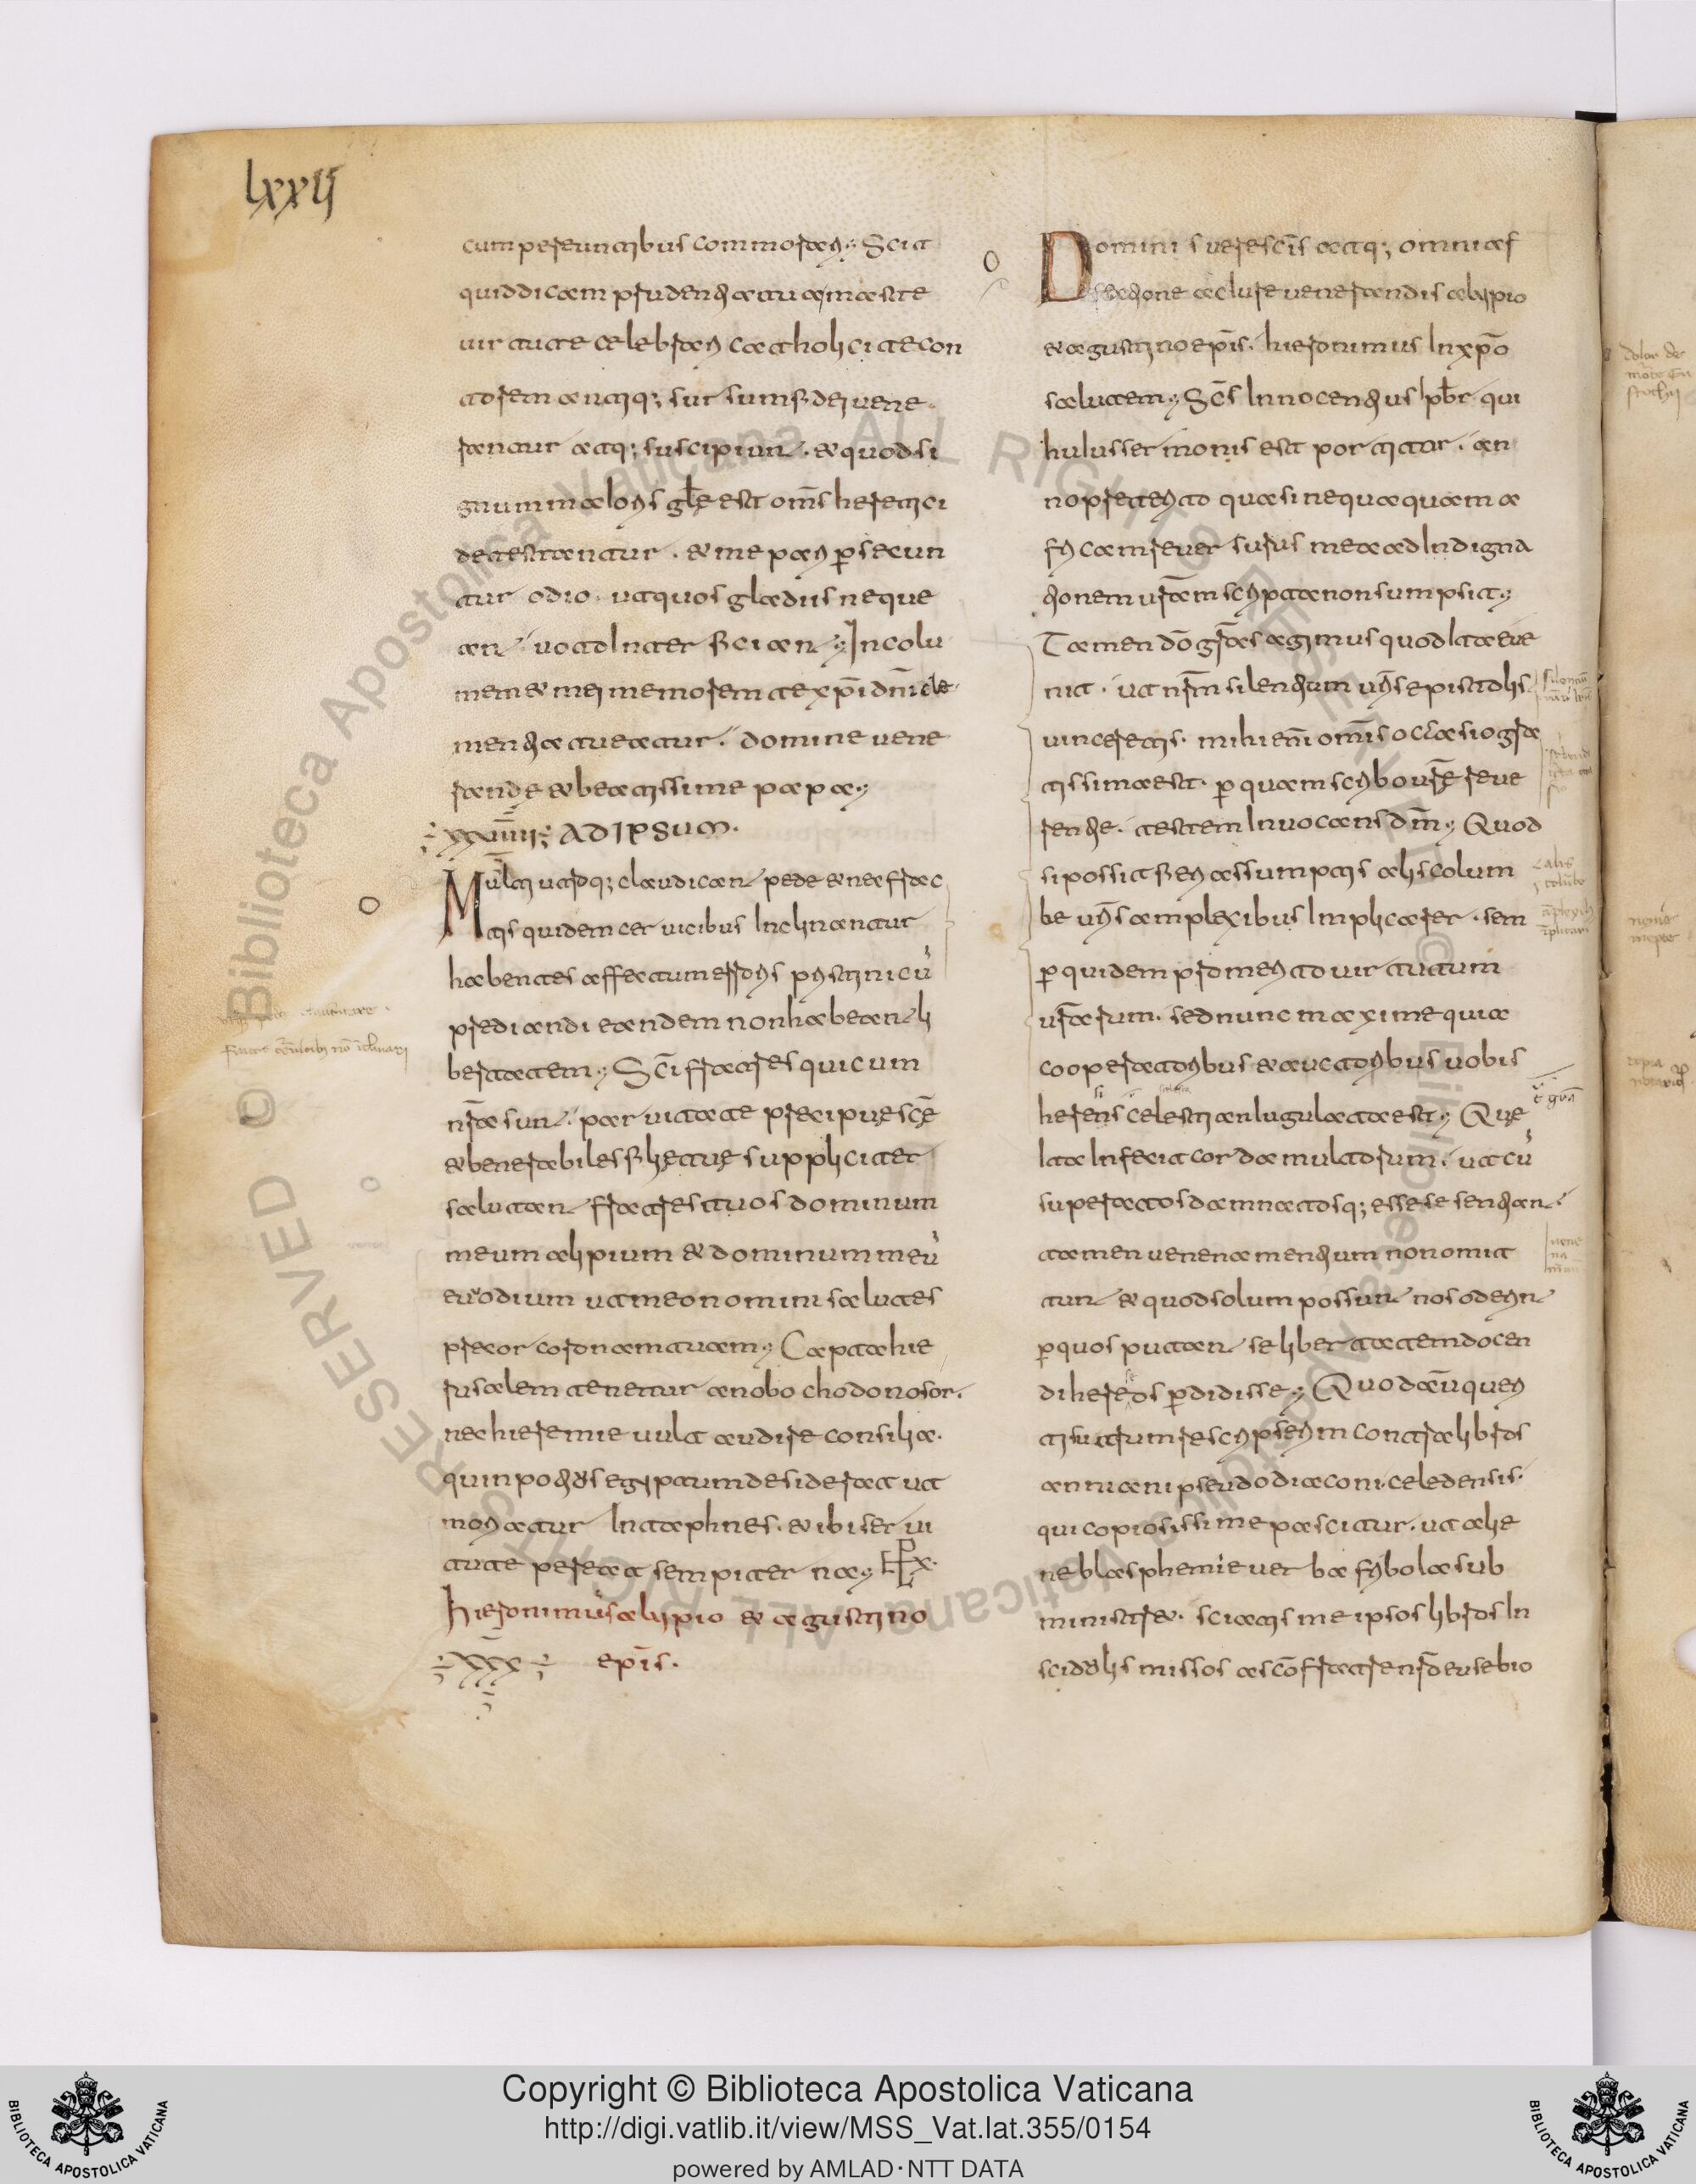 lxxij
cum pereuntibus commorari; Scit
quid dicam prudentia tua; macte
uirtute celebraris catholici te con
ditorem antiq; rursum fidei uene
rantur atq; suscipiunt. & quod si
gnum maioris glę est oms heretici
detestantur. & me pari psecun
tur odio. ut quos gladiis neque
ant uoto interficiant; Incolu
mem & mei memorem te xpi dni cle
mentia tueatur. domine uene
rande & beatissime papa;
xxuiiii; AD IPSUM.
Multi utroq; claudicant pede & ne frac
tis quidem ceruicibus inclinantur
habentes affectum erroris pristini cū
predicandi eandem non habeant li
bertatem; Sci fratres qui cum
nra sunt paruitate precipuę scę
& uenerabiles filię tuę suppliciter
salutant fratres tuos dominum
meum alipium & dominum meū
euodium ut meo nomini salutes
precor coronam tuam; Capta hie
rusalem tenetur a nabochodonosor.
nec hieremie uult audire consilia.
quin potius egiptum desiderat ut
moriatur In taphnes. & ibi serui
tute pereat sempiterna;
hieronimus alypio & agustino
xxx epis.
Domini suerescis atq; omni af
fectione ac iure uenerandis alypio
& agustino epis. hieronimus In xpo
salutem; Scs Innocentius pbr qui
huius sermonis est portitor. an
no preterito quasi nequaquam a
fricam reuersurus mea ad Indigna
tionem uram scripta non sumpsit;
Tamen do gras agimus quod Ita eue
nit. ut nrm silentium uris epistolis
uinceretis. mihi eni omis occasio gra
tissima est. p quam scribo urę reue
rentie. testem Inuocans dm; Quod
si possit fieri assumptis alis colum
be uris amplexibus Implicarer. sem
p quidem pro merito uirtutum
urarum. sed nunc maxime quia
cooperatoribus & auctoribus uobis
heresis celestiana Iugulata est; Que
Ita Infecit corda multorum. ut cū
superatos damnatosq; esse se sentiant
tamen uenena mentium non omit
tunt & quod solum possunt nos oderint
p quos putant se libertatem docen
di hereseos pdidisse; Quod aūt queri
tis utrum rescripserim contra libros
anniani pseudodiaconi. celedensis.
qui copiosissime pascitur. ut alie
ne blasphemie uerba fribola sub
ministret. sciatis me ipsos libros In
scidolis missos a sco fratre nro eusebio
Copyright © Biblioteca Apostolica Vaticana
http://digi.vatlib.it/view/MSS_Vat.lat.355/0154
powered by AMLAD·NTT DATA
BIBLIOTECA APOSTOLICA VATICANA
BIBLIOTECA APOSTOLICA VATICANA